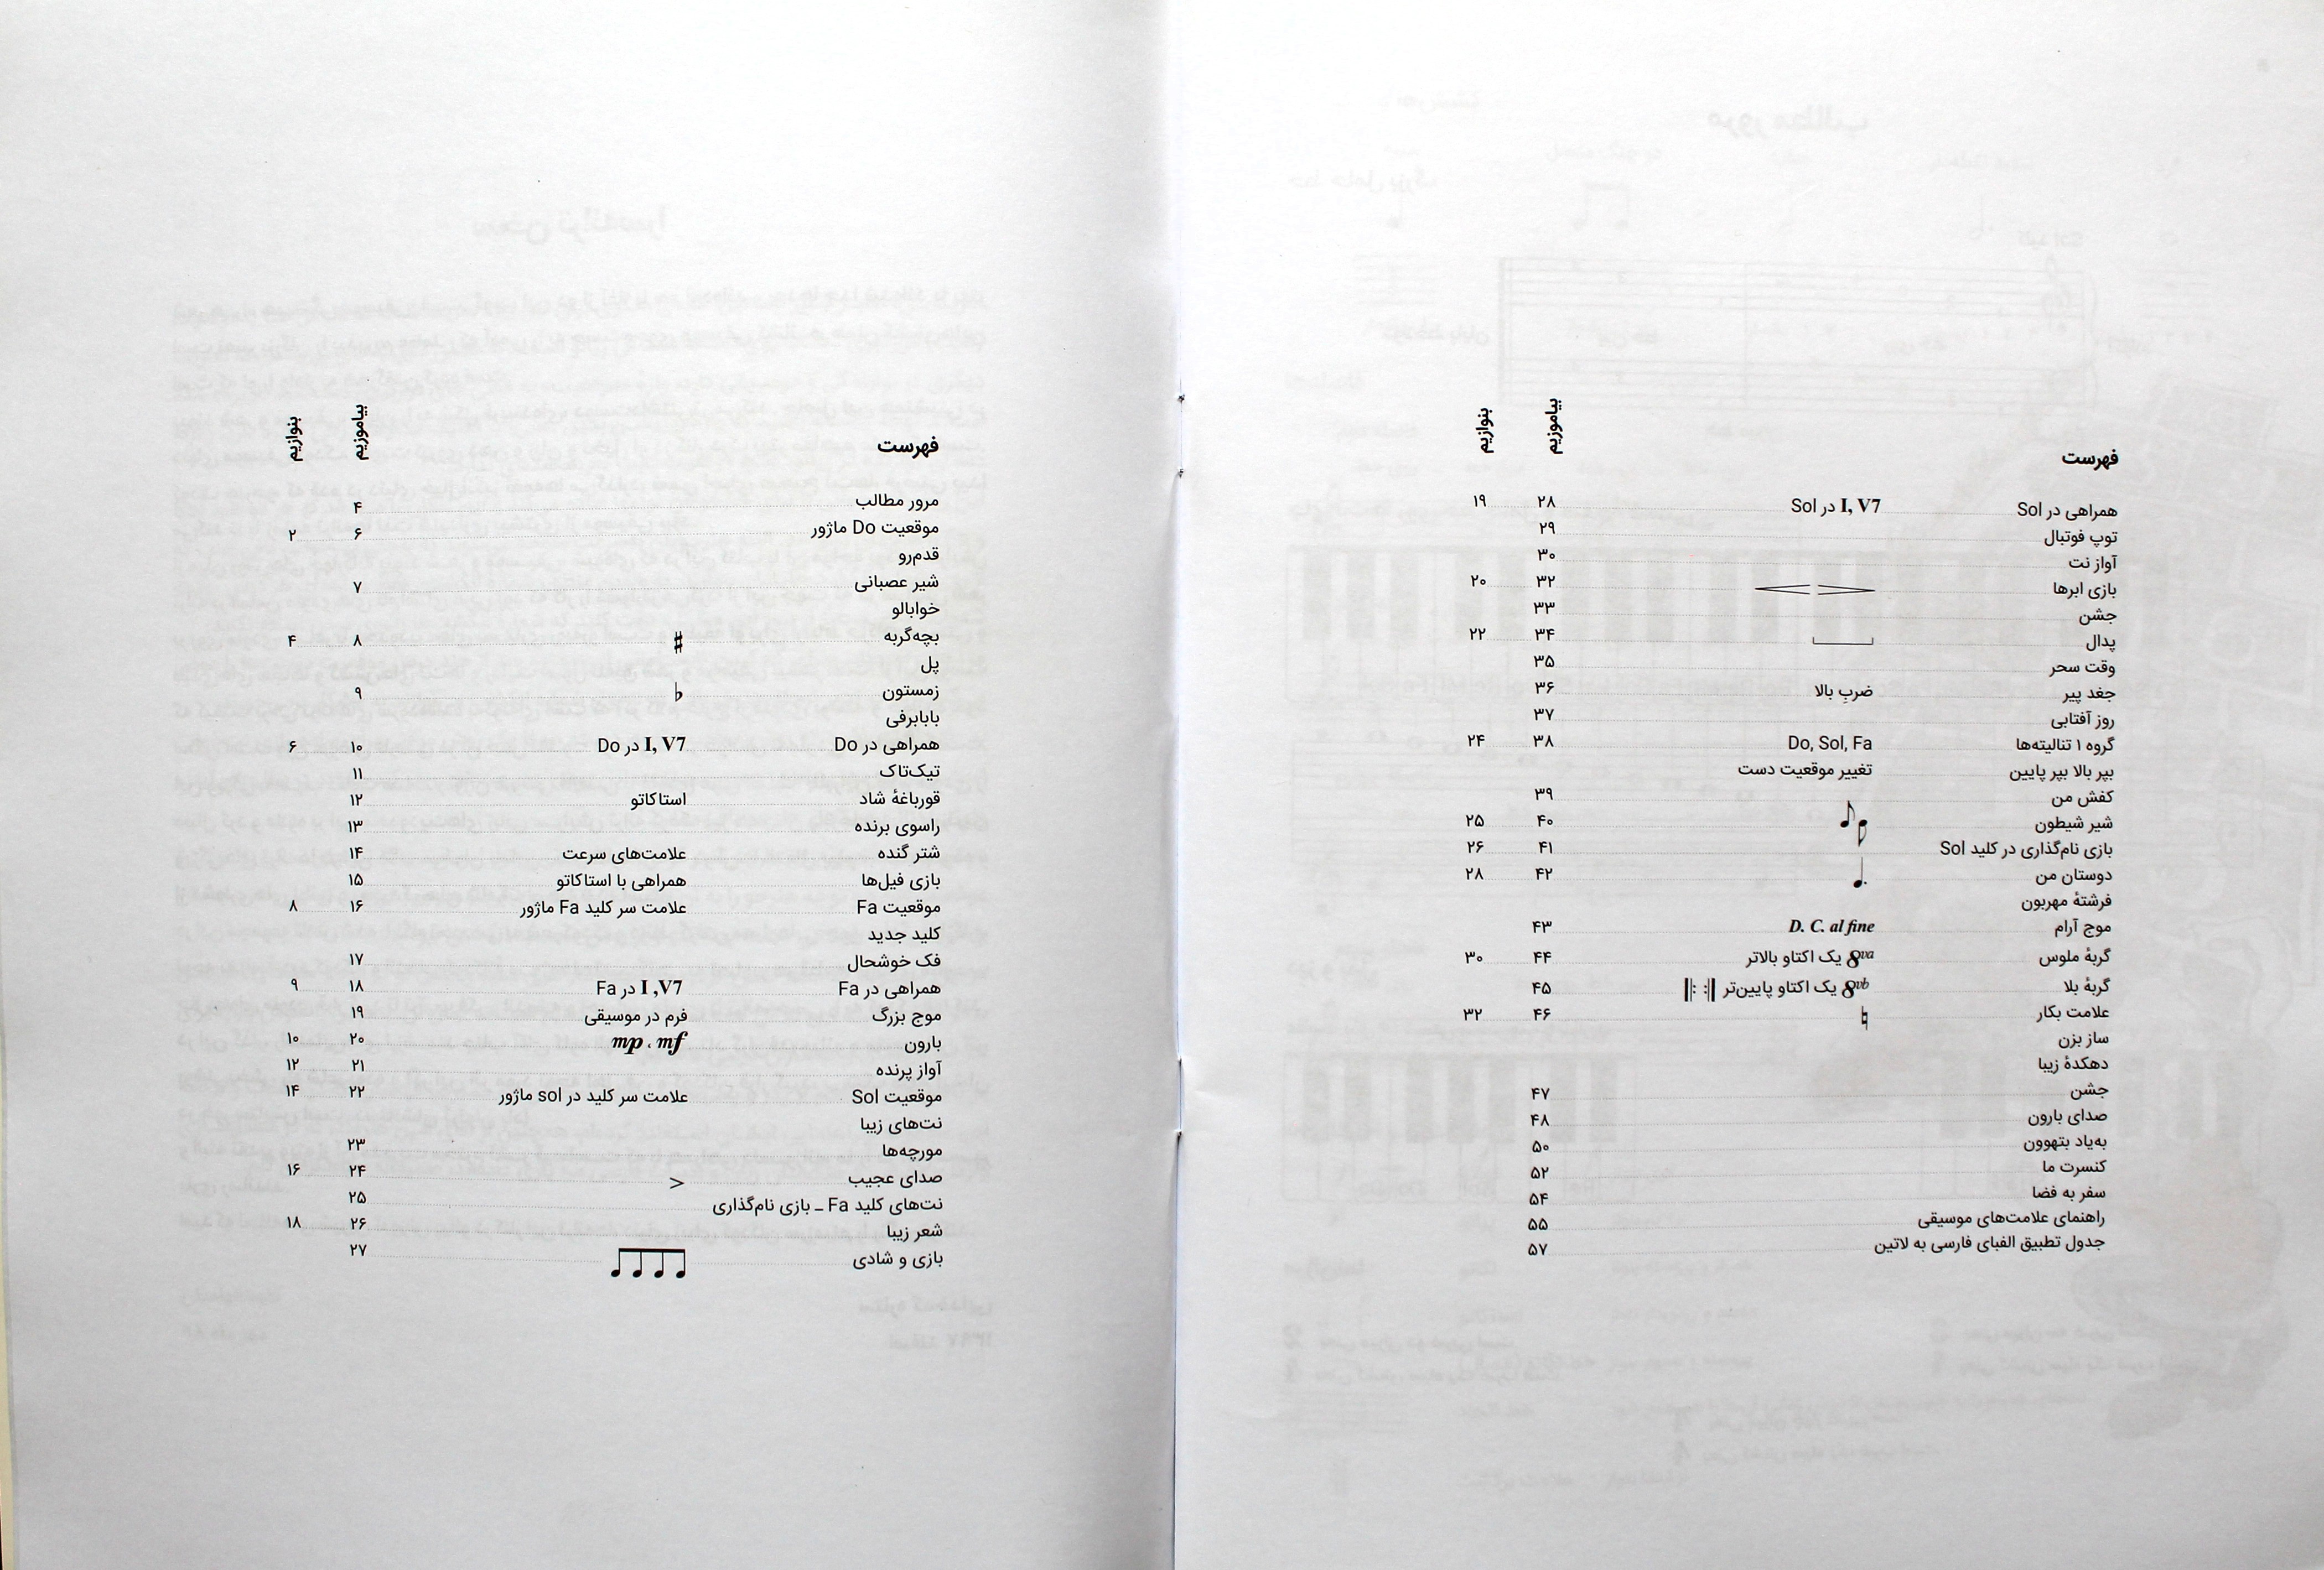 فهرست بیاموزیم بنوازیم
مرور مطالب ۴
موقعیت Do ماژور ۶ ۲
قدم‌رو
شیر عصبانی ۷
خوابالو
بچه‌گربه ♯ ۸ ۴
پل
زمستون ♭ ۹
بابابرفی
همراهی در Do I, V7 در Do ۱۰ ۶
تیک‌تاک ۱۱
قورباغهٔ شاد استاکاتو ۱۲
راسوی برنده ۱۳
شتر گنده علامت‌های سرعت ۱۴
بازی فیل‌ها همراهی با استاکاتو ۱۵
موقعیت Fa علامت سر کلید Fa ماژور ۱۶ ۸
کلید جدید
فک خوشحال ۱۷
همراهی در Fa I ,V7 در Fa ۱۸ ۹
موج بزرگ فرم در موسیقی ۱۹
بارون mp ، mf ۲۰ ۱۰
آواز پرنده ۲۱ ۱۲
موقعیت Sol علامت سر کلید در sol ماژور ۲۲ ۱۴
نت‌های زیبا
مورچه‌ها ۲۳
صدای عجیب > ۲۴ ۱۶
نت‌های کلید Fa ـ بازی نام‌گذاری ۲۵
شعر زیبا ۲۶ ۱۸
بازی و شادی ۲۷
فهرست بیاموزیم بنوازیم
همراهی در Sol I, V7 در Sol ۲۸ ۱۹
توپ فوتبال ۲۹
آواز نت ۳۰
بازی ابرها ۳۲ ۲۰
جشن ۳۳
پدال ۳۴ ۲۲
وقت سحر ۳۵
جغد پیر ضربِ بالا ۳۶
روز آفتابی ۳۷
گروه ۱ تنالیته‌ها Do, Sol, Fa ۳۸ ۲۴
بپر بالا بپر پایین تغییر موقعیت دست
کفش من ۳۹
شیر شیطون ♪ ۴۰ ۲۵
بازی نام‌گذاری در کلید Sol ۴۱ ۲۶
دوستان من ۴۲ ۲۸
فرشتهٔ مهربون
موج آرام D. C. al fine ۴۳
گربهٔ ملوس 8va یک اکتاو بالاتر ۴۴ ۳۰
گربهٔ بلا 8vb یک اکتاو پایین‌تر ۴۵
علامت بکار ♮ ۴۶ ۳۲
ساز بزن
دهکدهٔ زیبا
جشن ۴۷
صدای بارون ۴۸
به‌یاد بتهوون ۵۰
کنسرت ما ۵۲
سفر به فضا ۵۴
راهنمای علامت‌های موسیقی ۵۵
جدول تطبیق الفبای فارسی به لاتین ۵۷